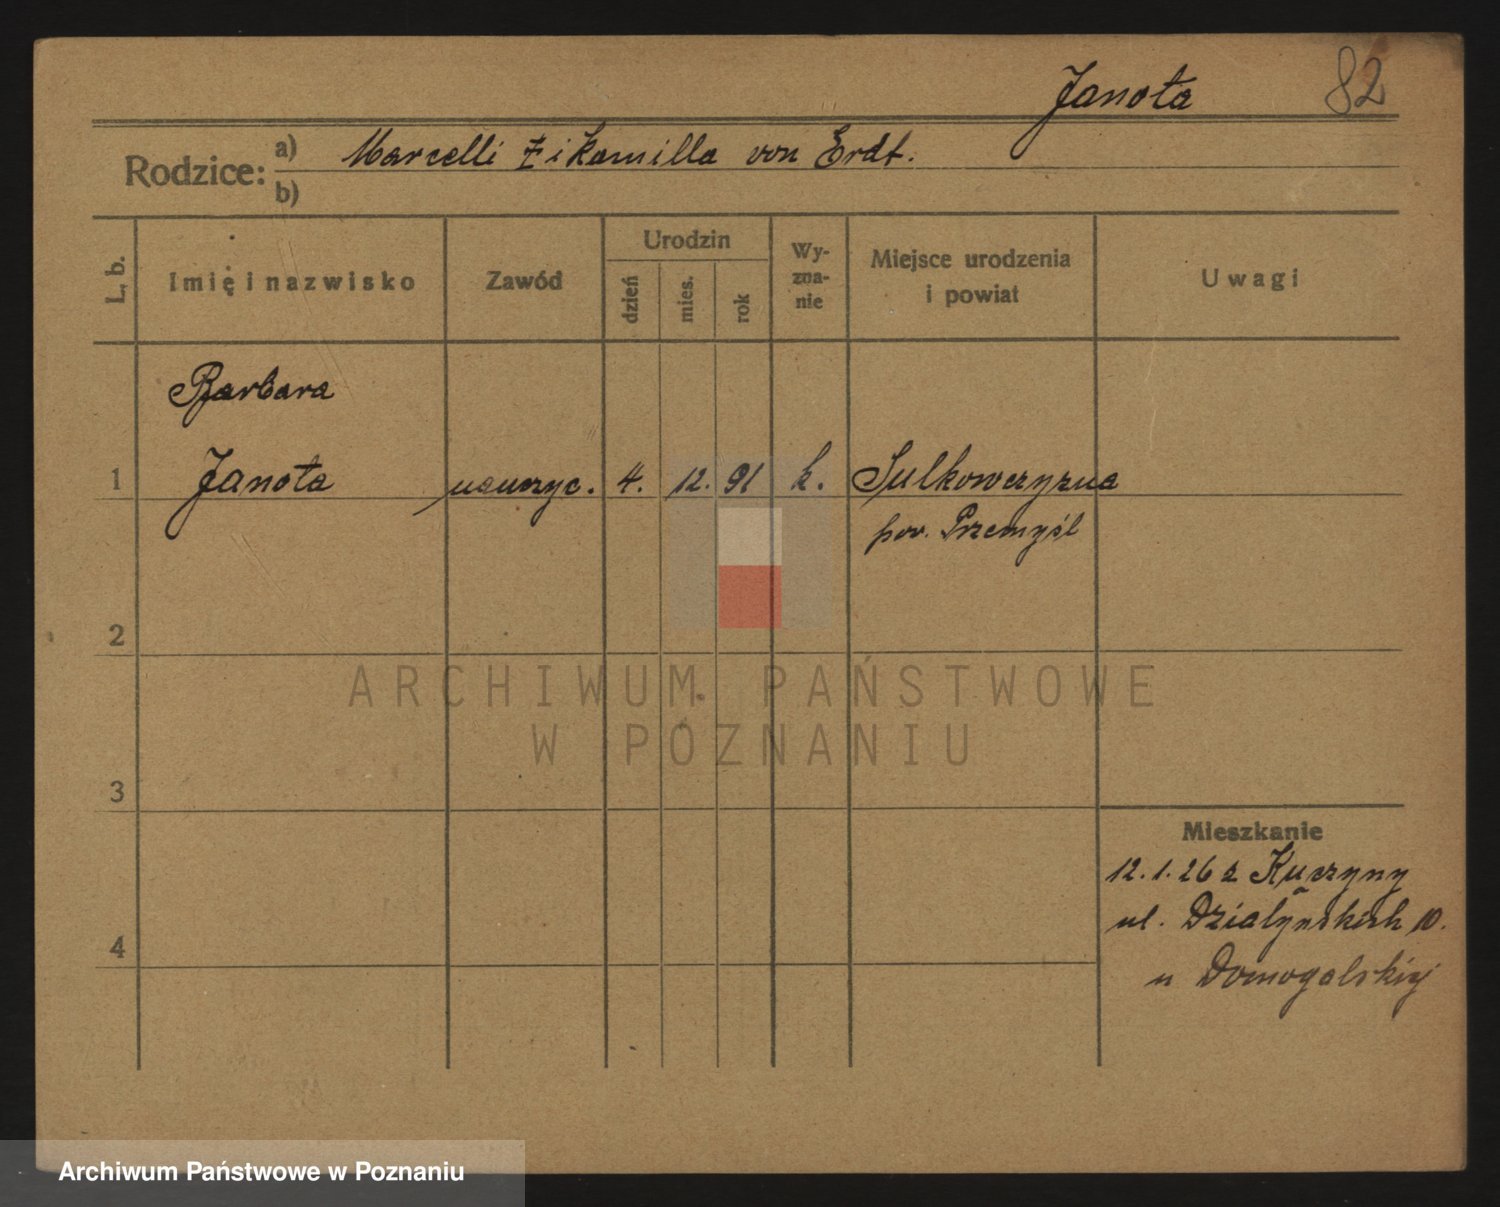 Janota 82
Rodzice: a) Marcelli Ż i Kamilla von Erdt.
b)
L. b. Imię i nazwisko Zawód Urodzin dzień mies. rok Wy-zna-nie Miejsce urodzenia i powiat Uwagi
Barbara
1 Janota nauczyc. 4. 12. 91 k. Sulkowczyzna
pow. Przemyśl
2
ARCHIWUM PAŃSTWOWE
W POZNANIU
3
Mieszkanie
12.1.26 z Kuczyny
ul. Działyńskich 10.
4
u Domogalskiej
Archiwum Państwowe w Poznaniu